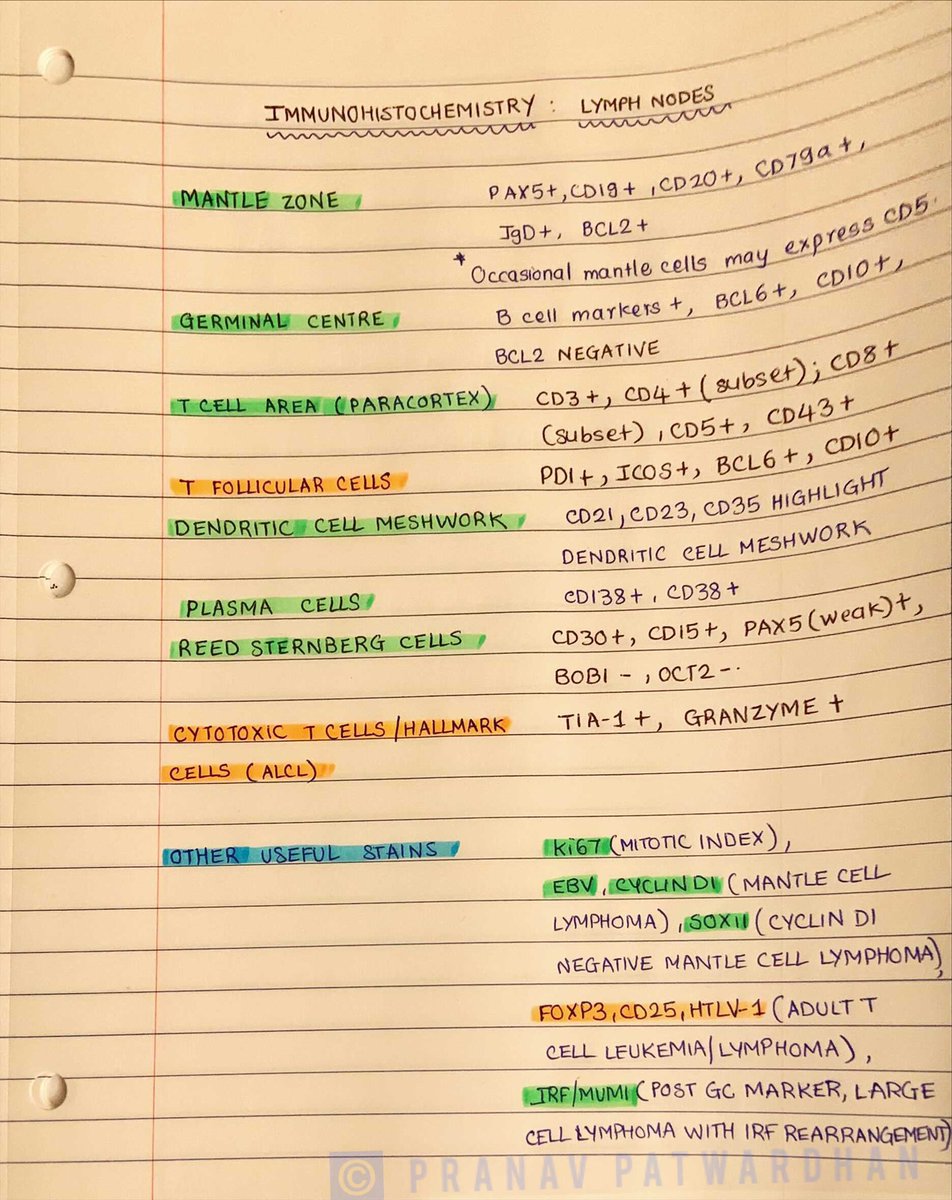 IMMUNOHISTOCHEMISTRY : LYMPH NODES
MANTLE ZONE PAX5+, CD19+, CD20+, CD79a+,
IgD+, BCL2+
* Occasional mantle cells may express CD5.
GERMINAL CENTRE B cell markers +, BCL6+, CD10+,
BCL2 NEGATIVE
T CELL AREA (PARACORTEX) CD3+, CD4+(subset); CD8+
(subset), CD5+, CD43+
T FOLLICULAR CELLS PD1+, ICOS+, BCL6+, CD10+
DENDRITIC CELL MESHWORK CD21, CD23, CD35 HIGHLIGHT
DENDRITIC CELL MESHWORK
PLASMA CELLS CD138+, CD38+
REED STERNBERG CELLS CD30+, CD15+, PAX5(weak)+,
BOB1 -, OCT2 -.
CYTOTOXIC T CELLS/HALLMARK TIA-1+, GRANZYME +
CELLS (ALCL)
OTHER USEFUL STAINS Ki67 (MITOTIC INDEX),
EBV, CYCLIN D1 (MANTLE CELL
LYMPHOMA), SOX11 (CYCLIN D1
NEGATIVE MANTLE CELL LYMPHOMA),
FOXP3, CD25, HTLV-1 (ADULT T
CELL LEUKEMIA/LYMPHOMA),
IRF/MUM1 (POST GC MARKER, LARGE
CELL LYMPHOMA WITH IRF REARRANGEMENT)
© PRANAV PATWARDHAN